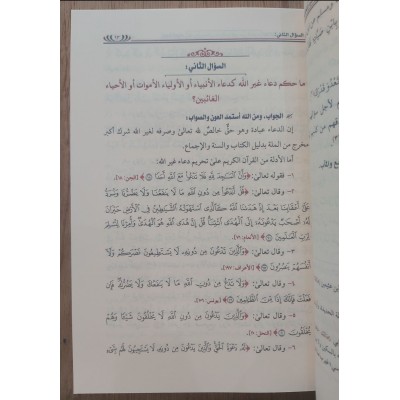 السؤال الثاني:
السؤال الثاني:
ما حكم دعاء غير الله كدعاء الأنبياء أو الأولياء الأموات أو الأحياء
الغائبين؟
الجواب، ومن الله أستمد العون والصواب:
إن الدعاء عبادة وهو حقٌّ خالصٌ لله تعالىٰ وصرفه لغير الله شرك أكبر
مخرج من الملة بدليل الكتاب والسنة والإجماع.
أما الأدلة من القرآن الكريم علىٰ تحريم دعاء غير الله:
١- فقوله تعالىٰ: ﴿وَأَنَّ الْمَسَاجِدَ لِلَّهِ فَلَا تَدْعُوا مَعَ اللَّهِ أَحَدًا﴾ [الجن: ١٨].
٢- وقال تعالىٰ: ﴿قُلْ أَنَدْعُوا مِن دُونِ اللَّهِ مَا لَا يَنفَعُنَا وَلَا يَضُرُّنَا وَنُرَدُّ
عَلَىٰ أَعْقَابِنَا بَعْدَ إِذْ هَدَانَا اللَّهُ كَالَّذِي اسْتَهْوَتْهُ الشَّيَاطِينُ فِي الْأَرْضِ حَيْرَانَ
لَهُ أَصْحَابٌ يَدْعُونَهُ إِلَى الْهُدَى ائْتِنَا قُلْ إِنَّ هُدَى اللَّهِ هُوَ الْهُدَىٰ وَأُمِرْنَا لِنُسْلِمَ
لِرَبِّ الْعَالَمِينَ﴾ [الأنعام: ٧١].
٣- وقال تعالىٰ: ﴿وَالَّذِينَ تَدْعُونَ مِن دُونِهِ لَا يَسْتَطِيعُونَ نَصْرَكُمْ وَلَا
أَنفُسَهُمْ يَنصُرُونَ﴾ [الأعراف: ١٩٧].
٤- وقال تعالىٰ: ﴿وَلَا تَدْعُ مِن دُونِ اللَّهِ مَا لَا يَنفَعُكَ وَلَا يَضُرُّكَ فَإِن
فَعَلْتَ فَإِنَّكَ إِذًا مِّنَ الظَّالِمِينَ﴾ [يونس: ١٠٦].
٥- وقال تعالىٰ: ﴿وَالَّذِينَ يَدْعُونَ مِن دُونِ اللَّهِ لَا يَخْلُقُونَ شَيْئًا وَهُمْ
يُخْلَقُونَ﴾ [النحل: ٢٠].
٦- وقال تعالىٰ: ﴿لَهُ دَعْوَةُ الْحَقِّ وَالَّذِينَ يَدْعُونَ مِن دُونِهِ لَا يَسْتَجِيبُونَ لَهُم بِشَيْءٍ